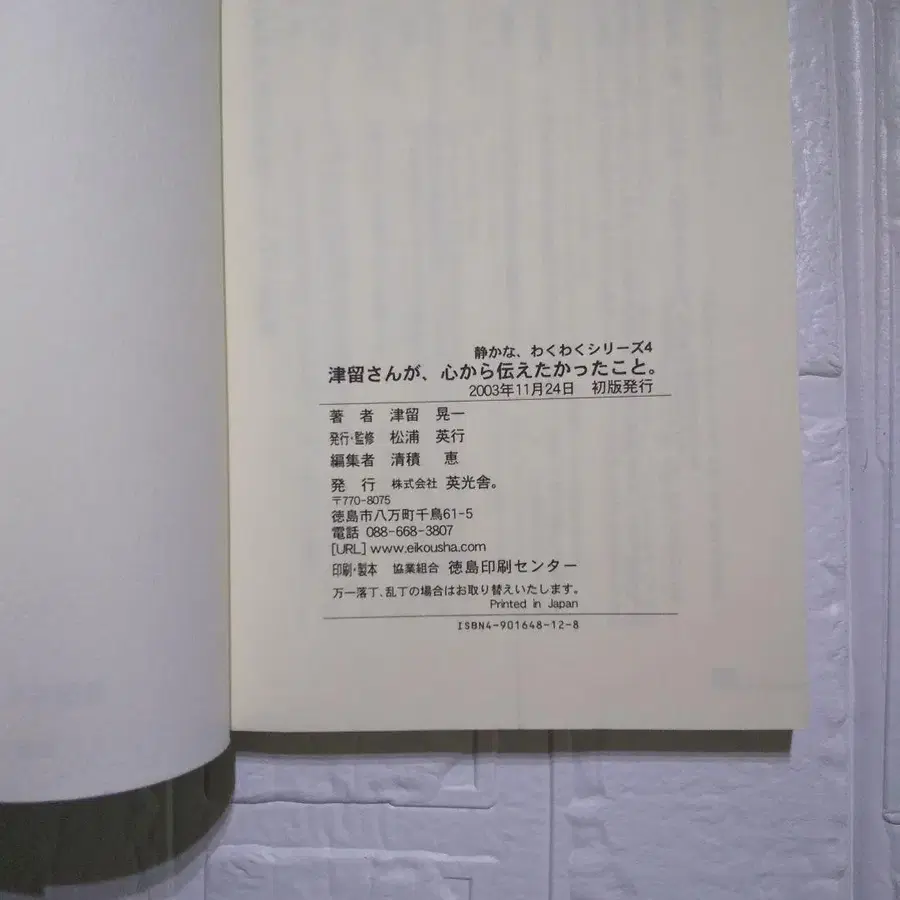 静かな、わくわくシリーズ4
津留さんが、心から伝えたかったこと。
2003年11月24日 初版発行
著 者 津留 晃一
発行・監修 松浦 英行
編集者 清積 恵
発 行 株式会社 英光舎。
〒770-8075
徳島市八万町千鳥61-5
電話 088-668-3807
[URL] www.eikousha.com
印刷・製本 協業組合 徳島印刷センター
万一落丁、乱丁の場合はお取り替えいたします。
Printed in Japan
ISBN4-901648-12-8